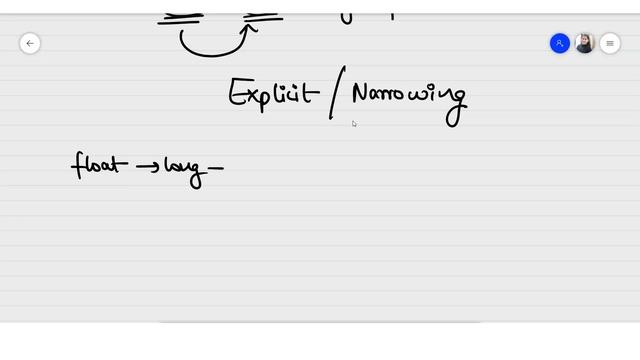 Explicit / Narrowing
float → long –